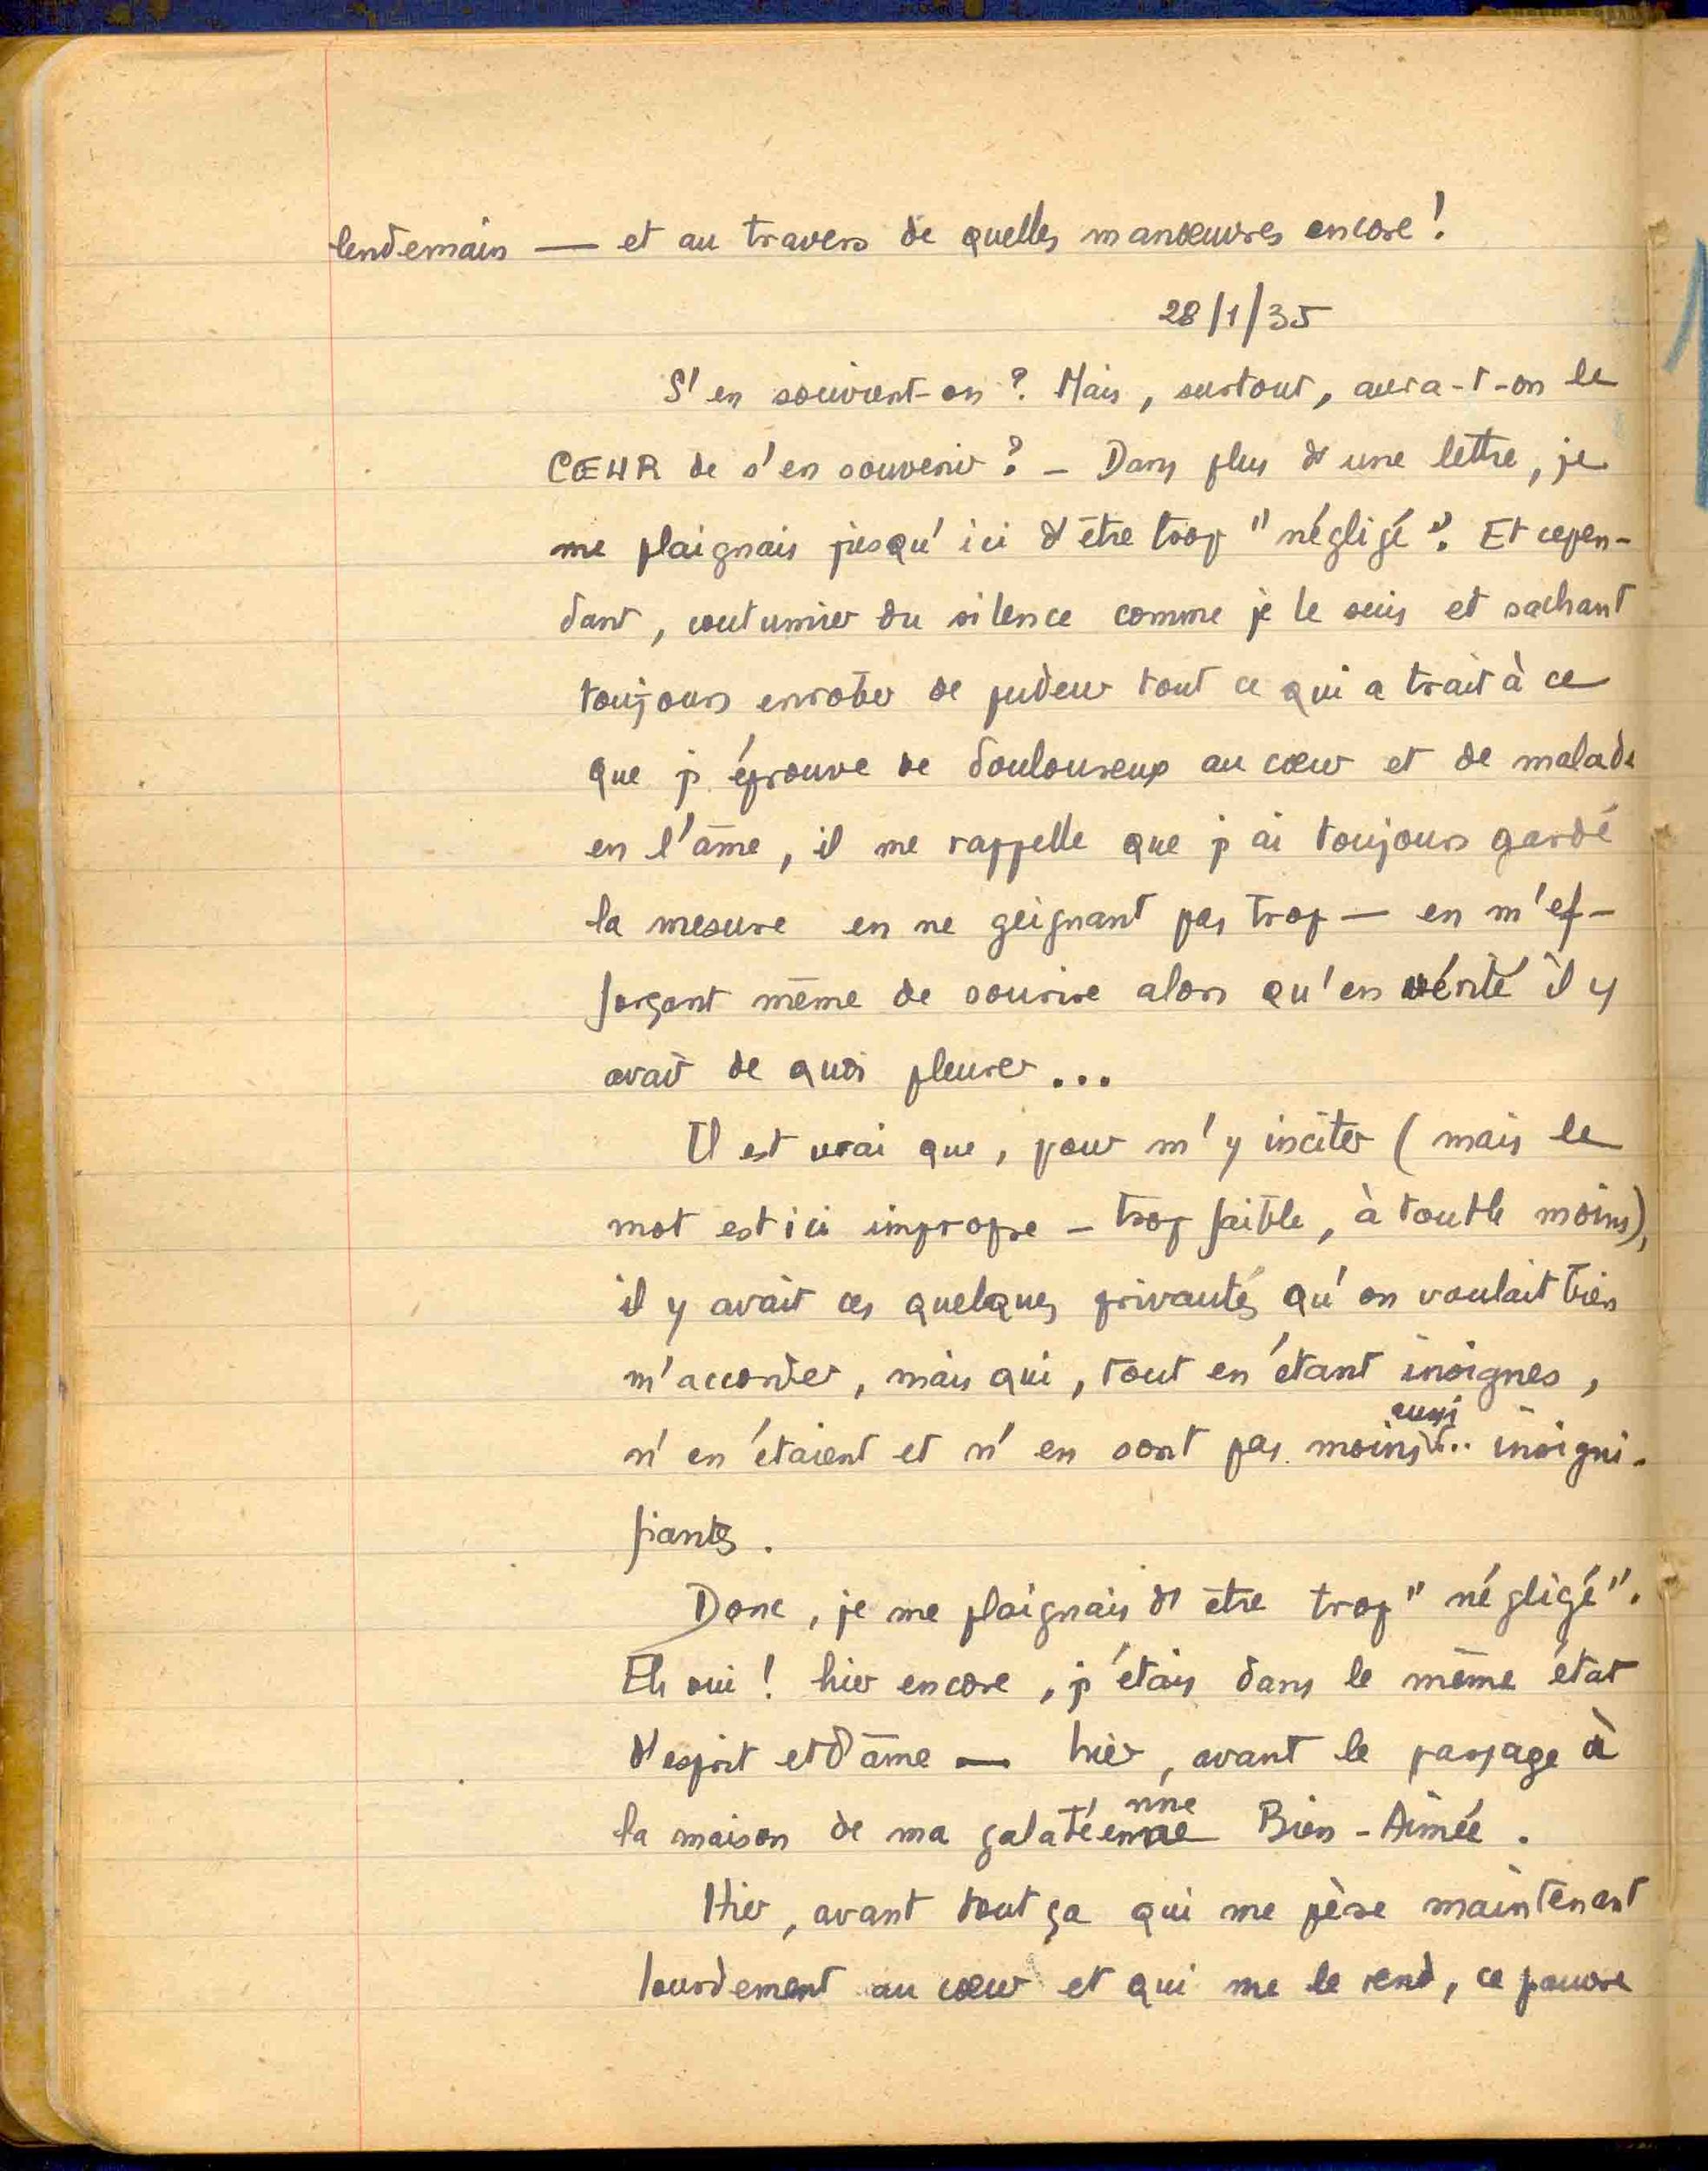 lendemain — et au travers de quelles manœuvres encore !
28/1/35
S'en souvient-on ? Mais, surtout, aura-t-on le
CŒUR de s'en souvenir ? – Dans plus d'une lettre, je
me plaignais jusqu'ici d'être trop "négligé". Et cepen-
dant, coutumier du silence comme je le suis et sachant
toujours enrober de pudeur tout ce qui a trait à ce
que j'éprouve de douloureux au cœur et de malade
en l'âme, il me rappelle que j'ai toujours gardé
la mesure en ne geignant pas trop — en m'ef-
forçant même de sourire alors qu'en vérité il y
avait de quoi pleurer...
Il est vrai que, pour m'y inciter (mais le
mot est ici impropre – trop faible, à tout le moins),
il y avait ces quelques privautés qu'on voulait bien
m'accorder, mais qui, tout en étant insignes,
aussi
n'en étaient et n'en sont pas moins... insigni-
fiantes.
Donc, je me plaignais d'être trop "négligé".
Eh oui ! hier encore, j'étais dans le même état
d'esprit et d'âme — hier, avant le passage à
nne
la maison de ma galatéenne Bien-Aimée.
Hier, avant tout ça qui me pèse maintenant
lourdement au cœur et qui me le rend, ce pauvre